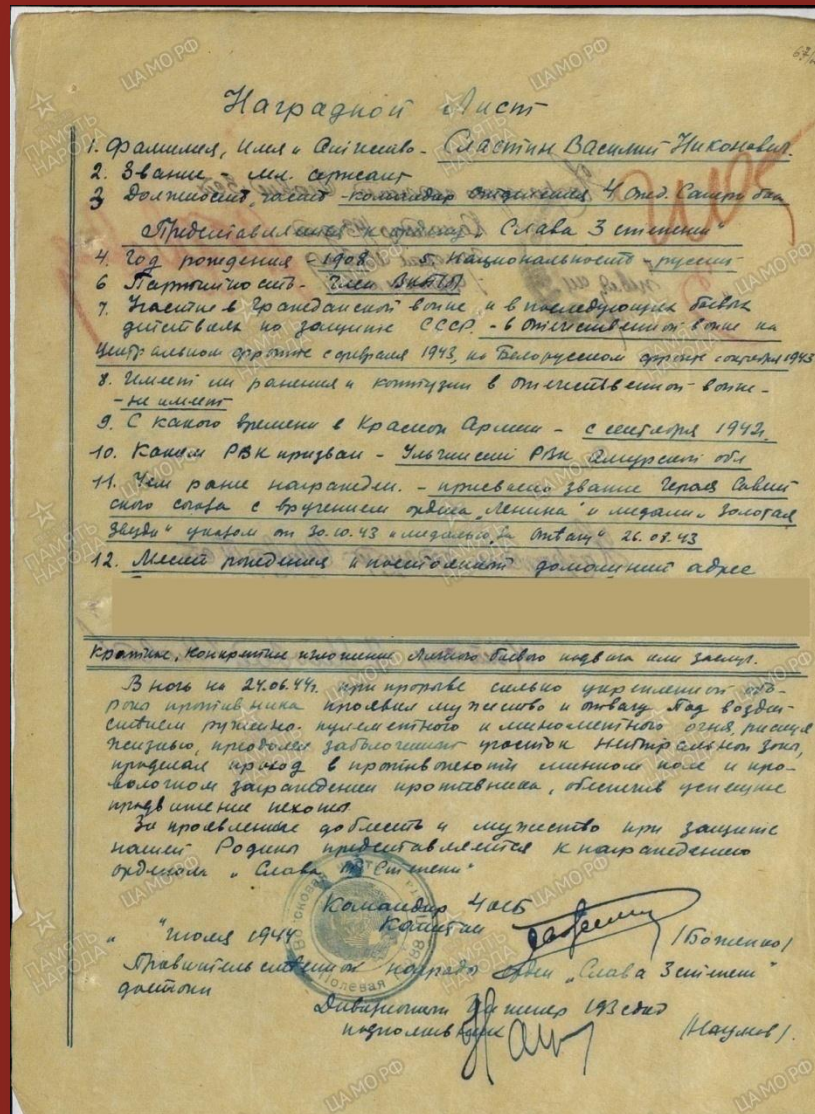 Наградной Лист
1. Фамилия, Имя и Отчество - Сластин Василий Никонович.
2. Звание - мл. сержант
3 Должность, часть - командир отделения 4 отд. Саперн бат
Представляется к ордену "Слава 3 степени"
4. Год рождения - 1908 5. Национальность - русский
6 Партийность - член ВКП(б)
7. Участие в Гражданской войне и в последующих боевых
действиях по защите СССР. - в отечественной войне на
Центральном фронте с февраля 1943, на Белорусском фронте с октября 1943
8. Имеет ли ранения и контузии в отечественной войне -
- не имеет
9. С какого времени в Красной Армии - с сентября 1942г.
10. Каким РВК призван - РВК Амурской обл
11. Чем ранее награжден. - присвоено звание Героя Совет
ского союза с вручением ордена "Ленина" и медали "Золотая
Звезда" указом от 30.10.43 и медалью "За отвагу" 26.08.43
12. Место рождения и постоянный домашний адрес
Краткое, конкретное изложение личного боевого подвига или заслуг.
В ночь на 24.06.44г. при прорыве сильно укрепленной обо-
роны противника проявил мужество и отвагу. Под воздей-
ствием ружейно-пулеметного и минометного огня, рискуя
жизнью, преодолев заболоченный участок нейтральной зоны,
проделал проход в противопехотном минном поле и про-
волочном заграждении противника, обеспечив успешное
продвижение пехоты
За проявленные доблесть и мужество при защите
нашей Родины представляется к награждению
орденом "Слава 3й степени"
Командир 4 осБ
Капитан /Боженко/
" " июля 1944
Правительственной награды орден "Слава 3 степени"
достоин
Дивизионный Инженер 193 сд
подполковник /Наумов/.
Полевая
ПАМЯТЬ НАРОДА
ЦАМО РФ